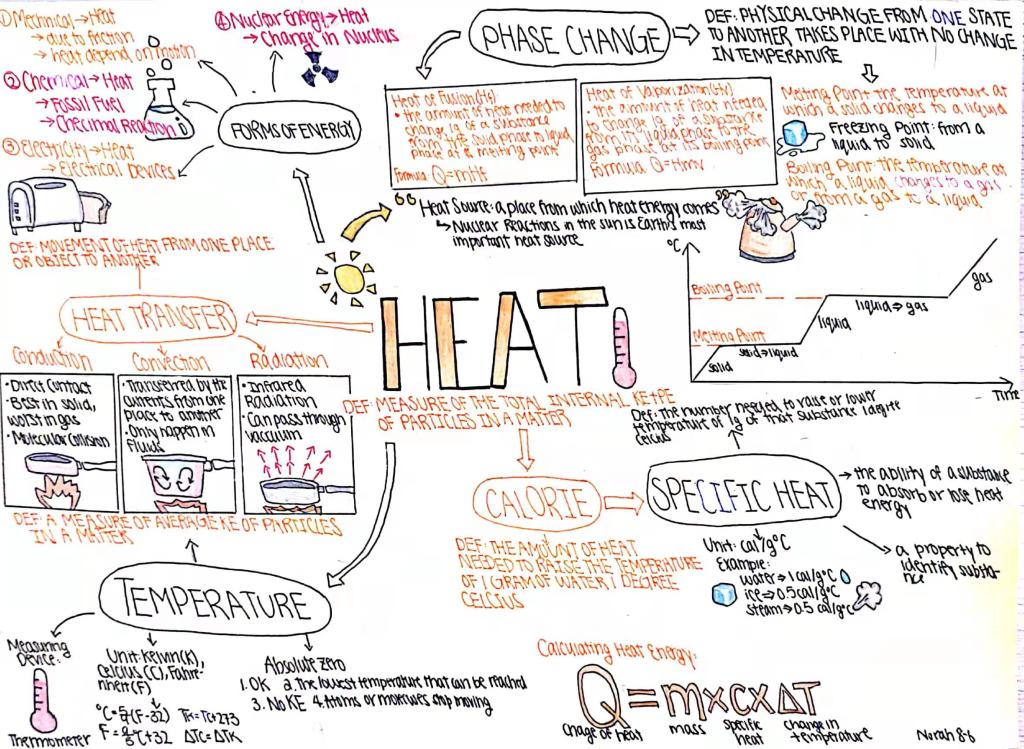 ① Mechanical → Heat
→ due to friction
→ heat depend on motion
② Chemical → Heat
→ Fossil Fuel
→ Checimal Reaction
③ Electricity → Heat
→ Electrical Devices
④ Nuclear Energy → Heat
→ Change in Nucleus
FORMS OF ENERGY
PHASE CHANGE
DEF: PHYSICAL CHANGE FROM ONE STATE
TO ANOTHER TAKES PLACE WITH NO CHANGE
IN TEMPERATURE
Heat of Fusion (Hf)
• the amount of heat needed to
change 1g of a substance
from the solid phase to liquid
phase at its melting point
Formula Q=mHf
Heat of Vaporization (Hv)
• the amount of heat needed
to change 1g of a substance
from it's liquid phase to the
gas phase at its boiling point
Formula Q=Hmv
Melting Point: the temperature at
which a solid changes to a liquid
Freezing Point: from a
liquid to solid
Boiling Point: the temperature at
which a liquid changes to a gas
or from a gas to a liquid
“ Heat Source: a place from which heat energy comes ”
↳ Nuclear Reactions in the sun is Earth's most
important heat source
°C
Boiling Point
Melting Point
solid
solid→liquid
liquid
liquid→gas
gas
Time
DEF: MOVEMENT OF HEAT FROM ONE PLACE
OR OBJECT TO ANOTHER
HEAT TRANSFER
Conduction
• Direct Contact
• Best in solid,
worst in gas
• Molecular Collision
Convection
• Transferred by the
currents from one
place to another
• Only happen in
fluids
Radiation
• Infrared
Radiation
• Can pass through
vaccuum
HEAT
DEF: MEASURE OF THE TOTAL INTERNAL KE+PE
OF PARTICLES IN A MATTER
CALORIE
DEF: THE AMOUNT OF HEAT
NEEDED TO RAISE THE TEMPERATURE
OF 1 GRAM OF WATER 1 DEGREE
CELSIUS
Def: the number needed to raise or lower
temperature of 1g of that substance 1 degree
celcius
SPECIFIC HEAT
→ the ability of a substance
to absorb or lose heat
energy
→ a property to
identify substa-
nce
Unit: cal/g°C
Example:
water → 1 cal/g°C
ice → 0.5 cal/g°C
steam → 0.5 cal/g°C
DEF: A MEASURE OF AVERAGE KE OF PARTICLES
IN A MATTER
TEMPERATURE
Measuring
Device:
Thermometer
Unit: Kelvin(K),
Celcius (C), Fahre-
nheit (F)
Tk=Tc+273
ΔTC=ΔTK
Absolute zero
1. 0K 2. The lowest temperature that can be reached
3. No KE 4. Atoms or molecules stop moving
Calculating Heat Energy:
Q=mxcxΔT
chage of heat
mass
specific
heat
change in
temperature
Norah 8-6